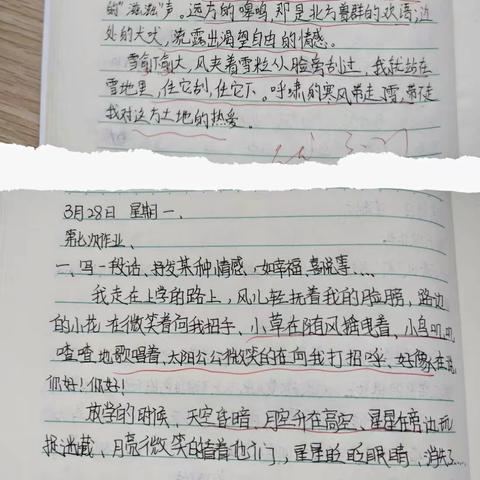 的"滋滋"声。远方的嗥鸣,那是北方兽群的欢语;近
处的犬吠,流露出渴望自由的情感。
雪愈下愈大,风夹着雪粒从脸旁刮过,我就站在
雪地里,任它刮,任它下。呼啸的寒风带走雪,带不走
我对这方土地的热爱。
3月28日 星期一、
第七次作业、
一、写一段话、抒发某种情感,如幸福、喜悦等....
我走在上学的路上,风儿轻抚着我的脸膀,路边
的小花在微笑着向我招手、小草在随风摇曳着,小鸟叽叽
喳喳地歌唱着、太阳公公微笑的在向我打招呼、好像在说
你好!你好!
放学的时候、天空昏暗、月空升在高空、星星在旁边玩
捉迷藏、月亮微笑的看着他们,星星眨眨眼睛、消失了....